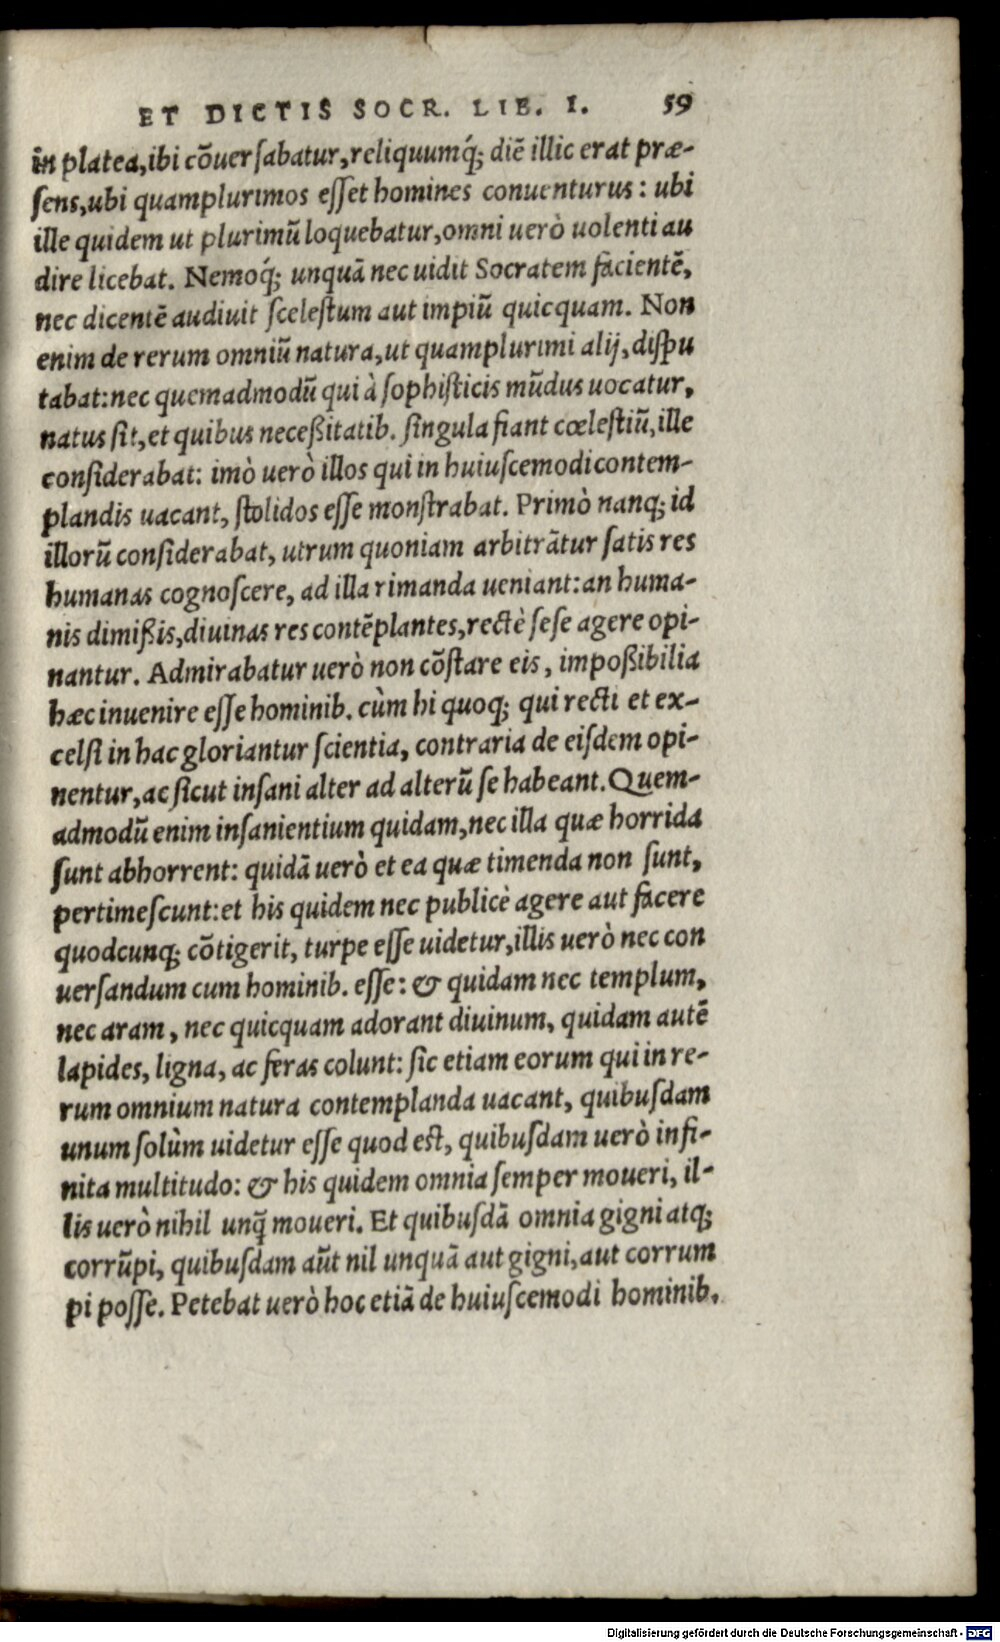 ET DICTIS SOCR. LIB. I. 59
in platea, ibi cōuersabatur, reliquumq́; diē illic erat præ-
sens, ubi quamplurimos esset homines conuenturus: ubi
ille quidem ut plurimū loquebatur, omni uerò uolenti au
dire licebat. Nemoq́; unquā nec uidit Socratem facientē,
nec dicentē audiuit scelestum aut impiū quicquam. Non
enim de rerum omniū natura, ut quamplurimi alij, dispu
tabat: nec quemadmodū qui à sophisticis mūdus uocatur,
natus sit, et quibus neceßitatib. singula fiant cœlestiū, ille
considerabat: imò uerò illos qui in huiuscemodi contem-
plandis uacant, stolidos esse monstrabat. Primò nanq; id
illorū considerabat, utrum quoniam arbitrātur satis res
humanas cognoscere, ad illa rimanda ueniant: an huma-
nis dimißis, diuinas res contēplantes, rectè sese agere opi-
nantur. Admirabatur uerò non cōstare eis, impoßibilia
hæc inuenire esse hominib. cùm hi quoq; qui recti et ex-
celsi in hac gloriantur scientia, contraria de eisdem opi-
nentur, ac sicut insani alter ad alterū se habeant. Quem-
admodū enim insanientium quidam, nec illa quæ horrida
sunt abhorrent: quidā uerò et ea quæ timenda non sunt,
pertimescunt: et his quidem nec publicè agere aut facere
quodcunq; cōtigerit, turpe esse uidetur, illis uerò nec con
uersandum cum hominib. esse: & quidam nec templum,
nec aram, nec quicquam adorant diuinum, quidam autē
lapides, ligna, ac feras colunt: sic etiam eorum qui in re-
rum omnium natura contemplanda uacant, quibusdam
unum solùm uidetur esse quod est, quibusdam uerò infi-
nita multitudo: & his quidem omnia semper moueri, il-
lis uerò nihil unq̄ moueri. Et quibusdā omnia gigni atq;
corrūpi, quibusdam aūt nil unquā aut gigni, aut corrum
pi posse. Petebat uerò hoc etiā de huiuscemodi hominib.
Digitalisierung gefördert durch die Deutsche Forschungsgemeinschaft - DFG